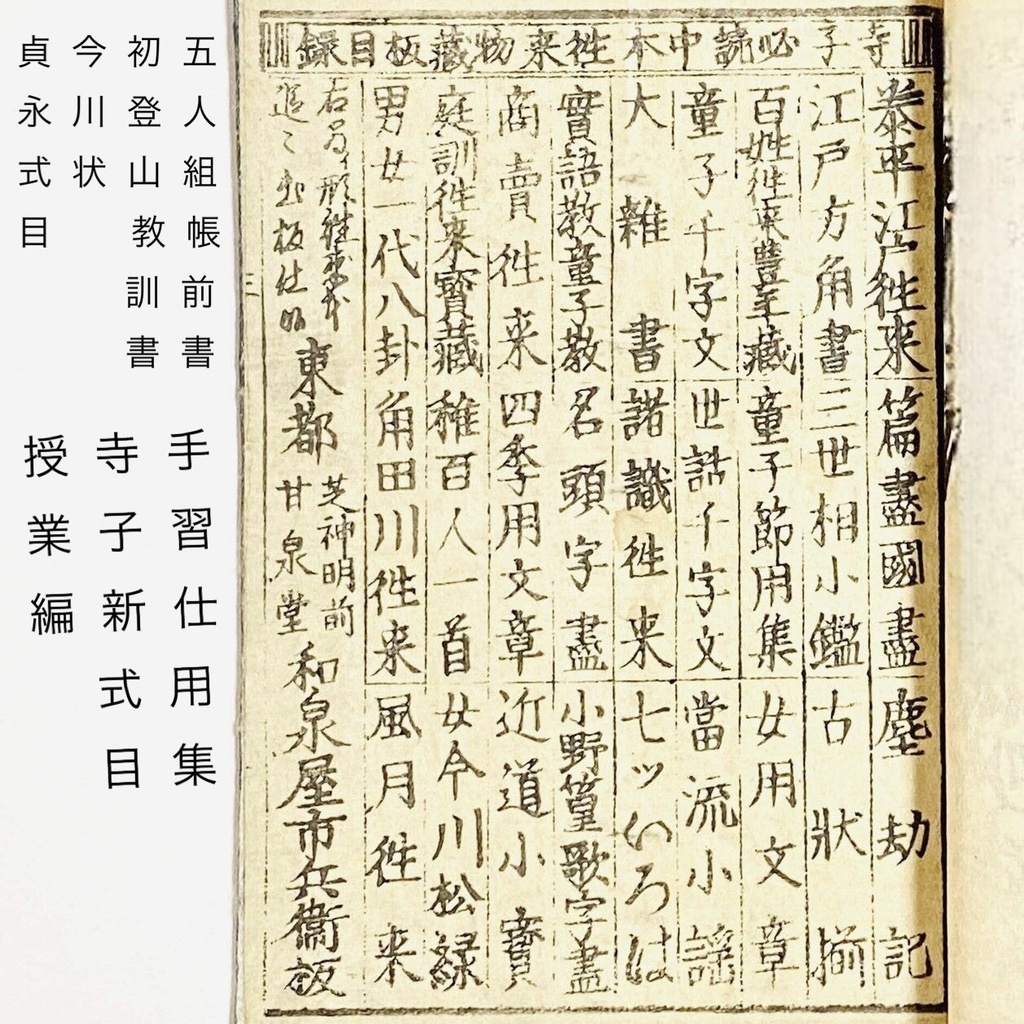 寺子必読中本徃来物藏板目録
泰平江戸徃来 篇盡國盡 塵劫記
江戸方角書 三世相小鑑 古狀揃
百姓徃来豊年藏 童子節用集 女用文章
童子千字文 世話千字文 當流小謡
大雜書 諸識徃来 七ッいろは
實語教童子教 名頭字盡 小野篁歌字盡
商賣徃来 四季用文章 近道小寳
庭訓徃来寳藏 稚百人一首 女今川松緑
男女一代八卦 角田川徃来 風月徃来
追々出板仕候
東都 芝神明前
甘泉堂 和泉屋市兵衞板
五人組帳前書
初登山教訓書
今川状
貞永式目
手習仕用集
寺子新式目
授業編